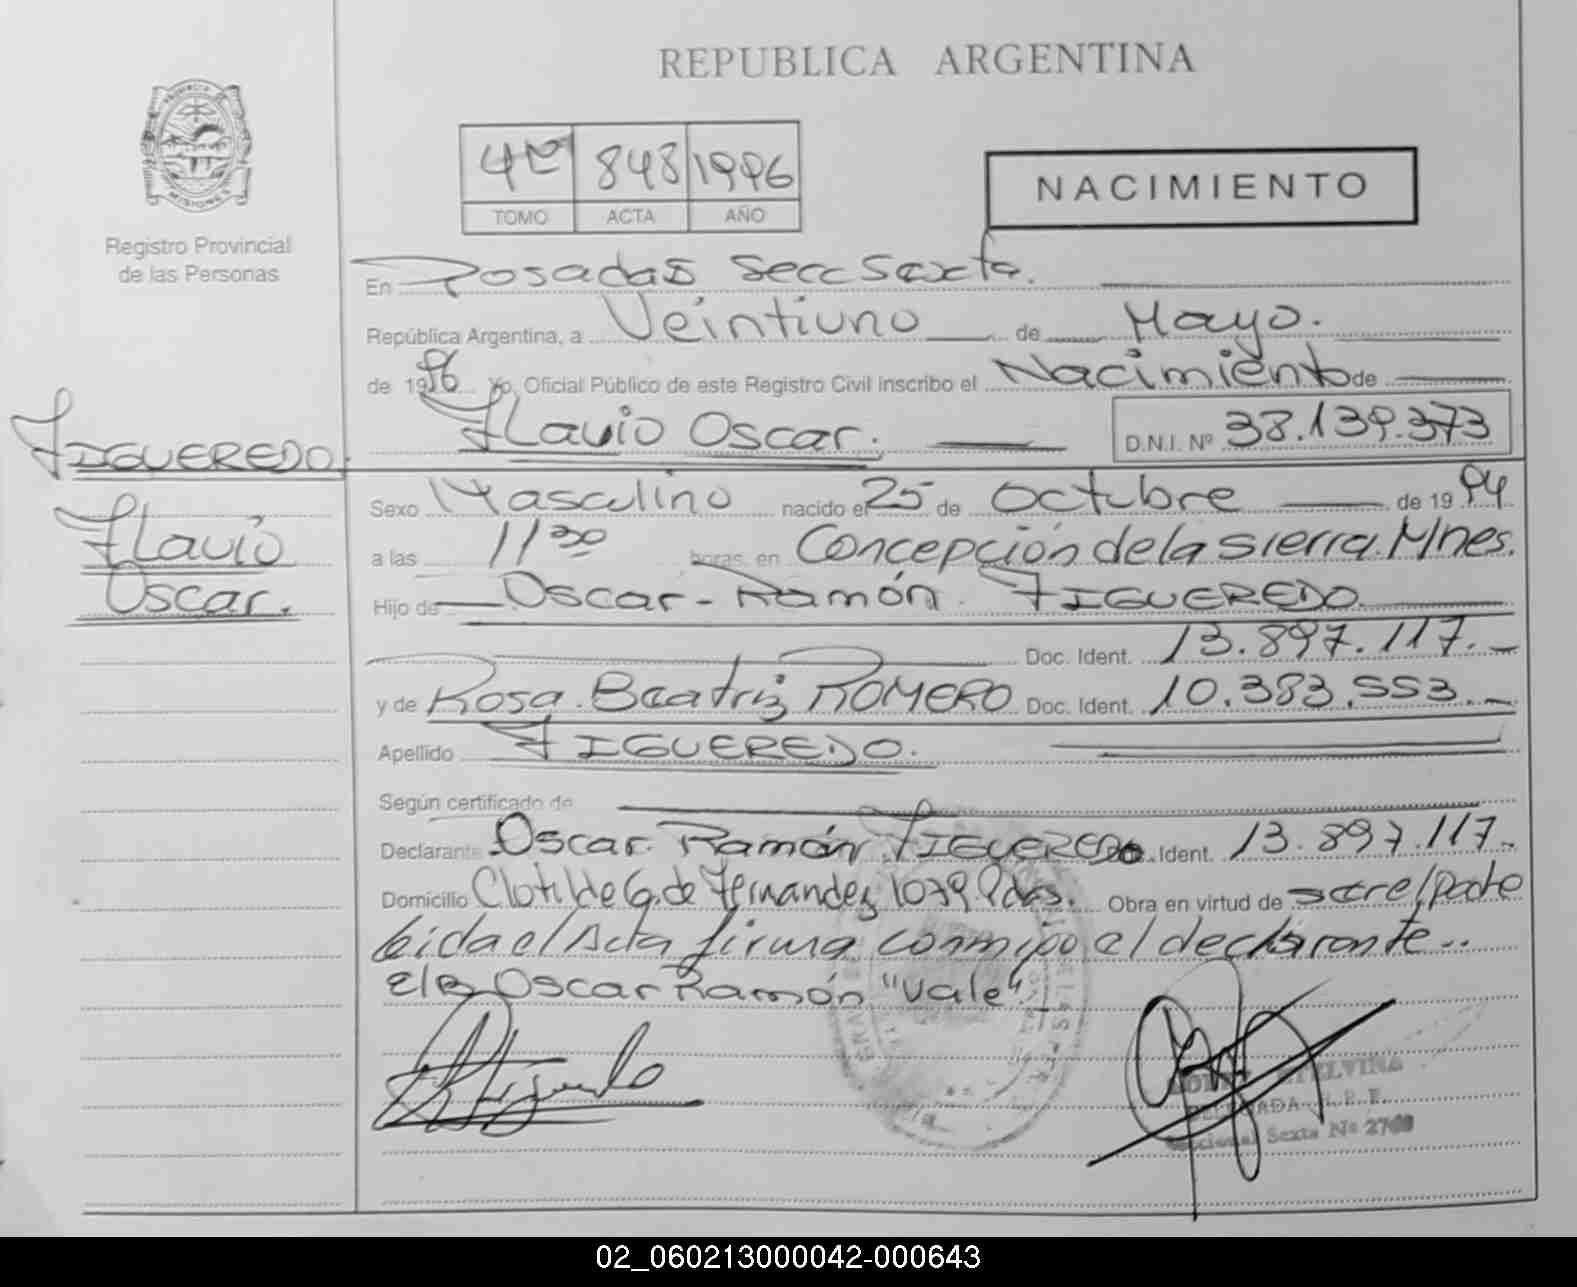 REPUBLICA ARGENTINA
MISIONES
Registro Provincial
de las Personas
4º 848 1996
TOMO ACTA AÑO
NACIMIENTO
En Posadas Secc Sexta.
República Argentina, a Veintiuno de Mayo.
de 1996 Yo, Oficial Público de este Registro Civil inscribo el Nacimiento de
Flavio Oscar. D.N.I. Nº 38.139.373
FIGUEREDO.
Flavio
Oscar.
Sexo Masculino nacido el 25 de Octubre de 1994
a las 11 30 horas, en Concepción de la Sierra. Mnes.
Hijo de Oscar-Ramón FIGUEREDO
Doc. Ident. 13.897.117.-
y de Rosa Beatriz ROMERO Doc. Ident. 10.383.553.-
Apellido FIGUEREDO.
Según certificado de
Declarante Oscar Ramón FIGUEREDO Doc. Ident. 13.897.117.-
Domicilio Clotilde G. de Fernandez 1079 Pdas. Obra en virtud de
el Acta firma conmigo el declarante..
Oscar Ramón "Vale"
DELEGADA
Seccional Sexta Nº
02_060213000042-000643